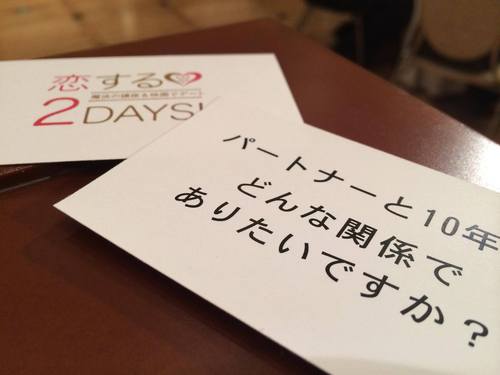 恋する
2DAYS!
パートナーと10年
どんな関係で
ありたいですか？